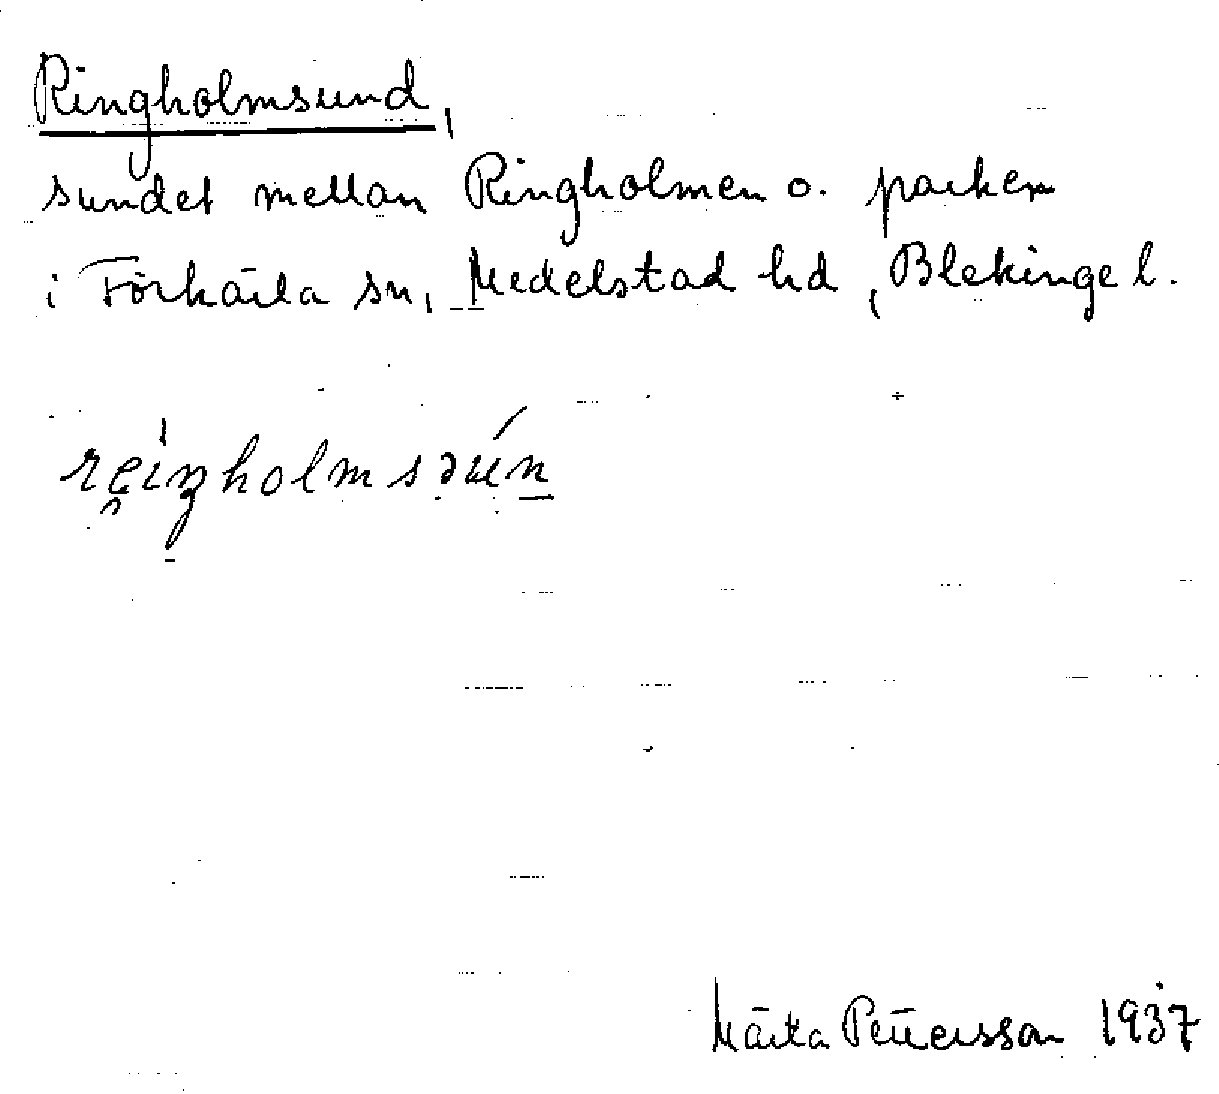 Ringholmsund,
sundet mellan Ringholmen o. parken
i Förkärla sn, Medelstad hd, Blekinge l.
reiŋholmsəún
Märta Pettersson 1937